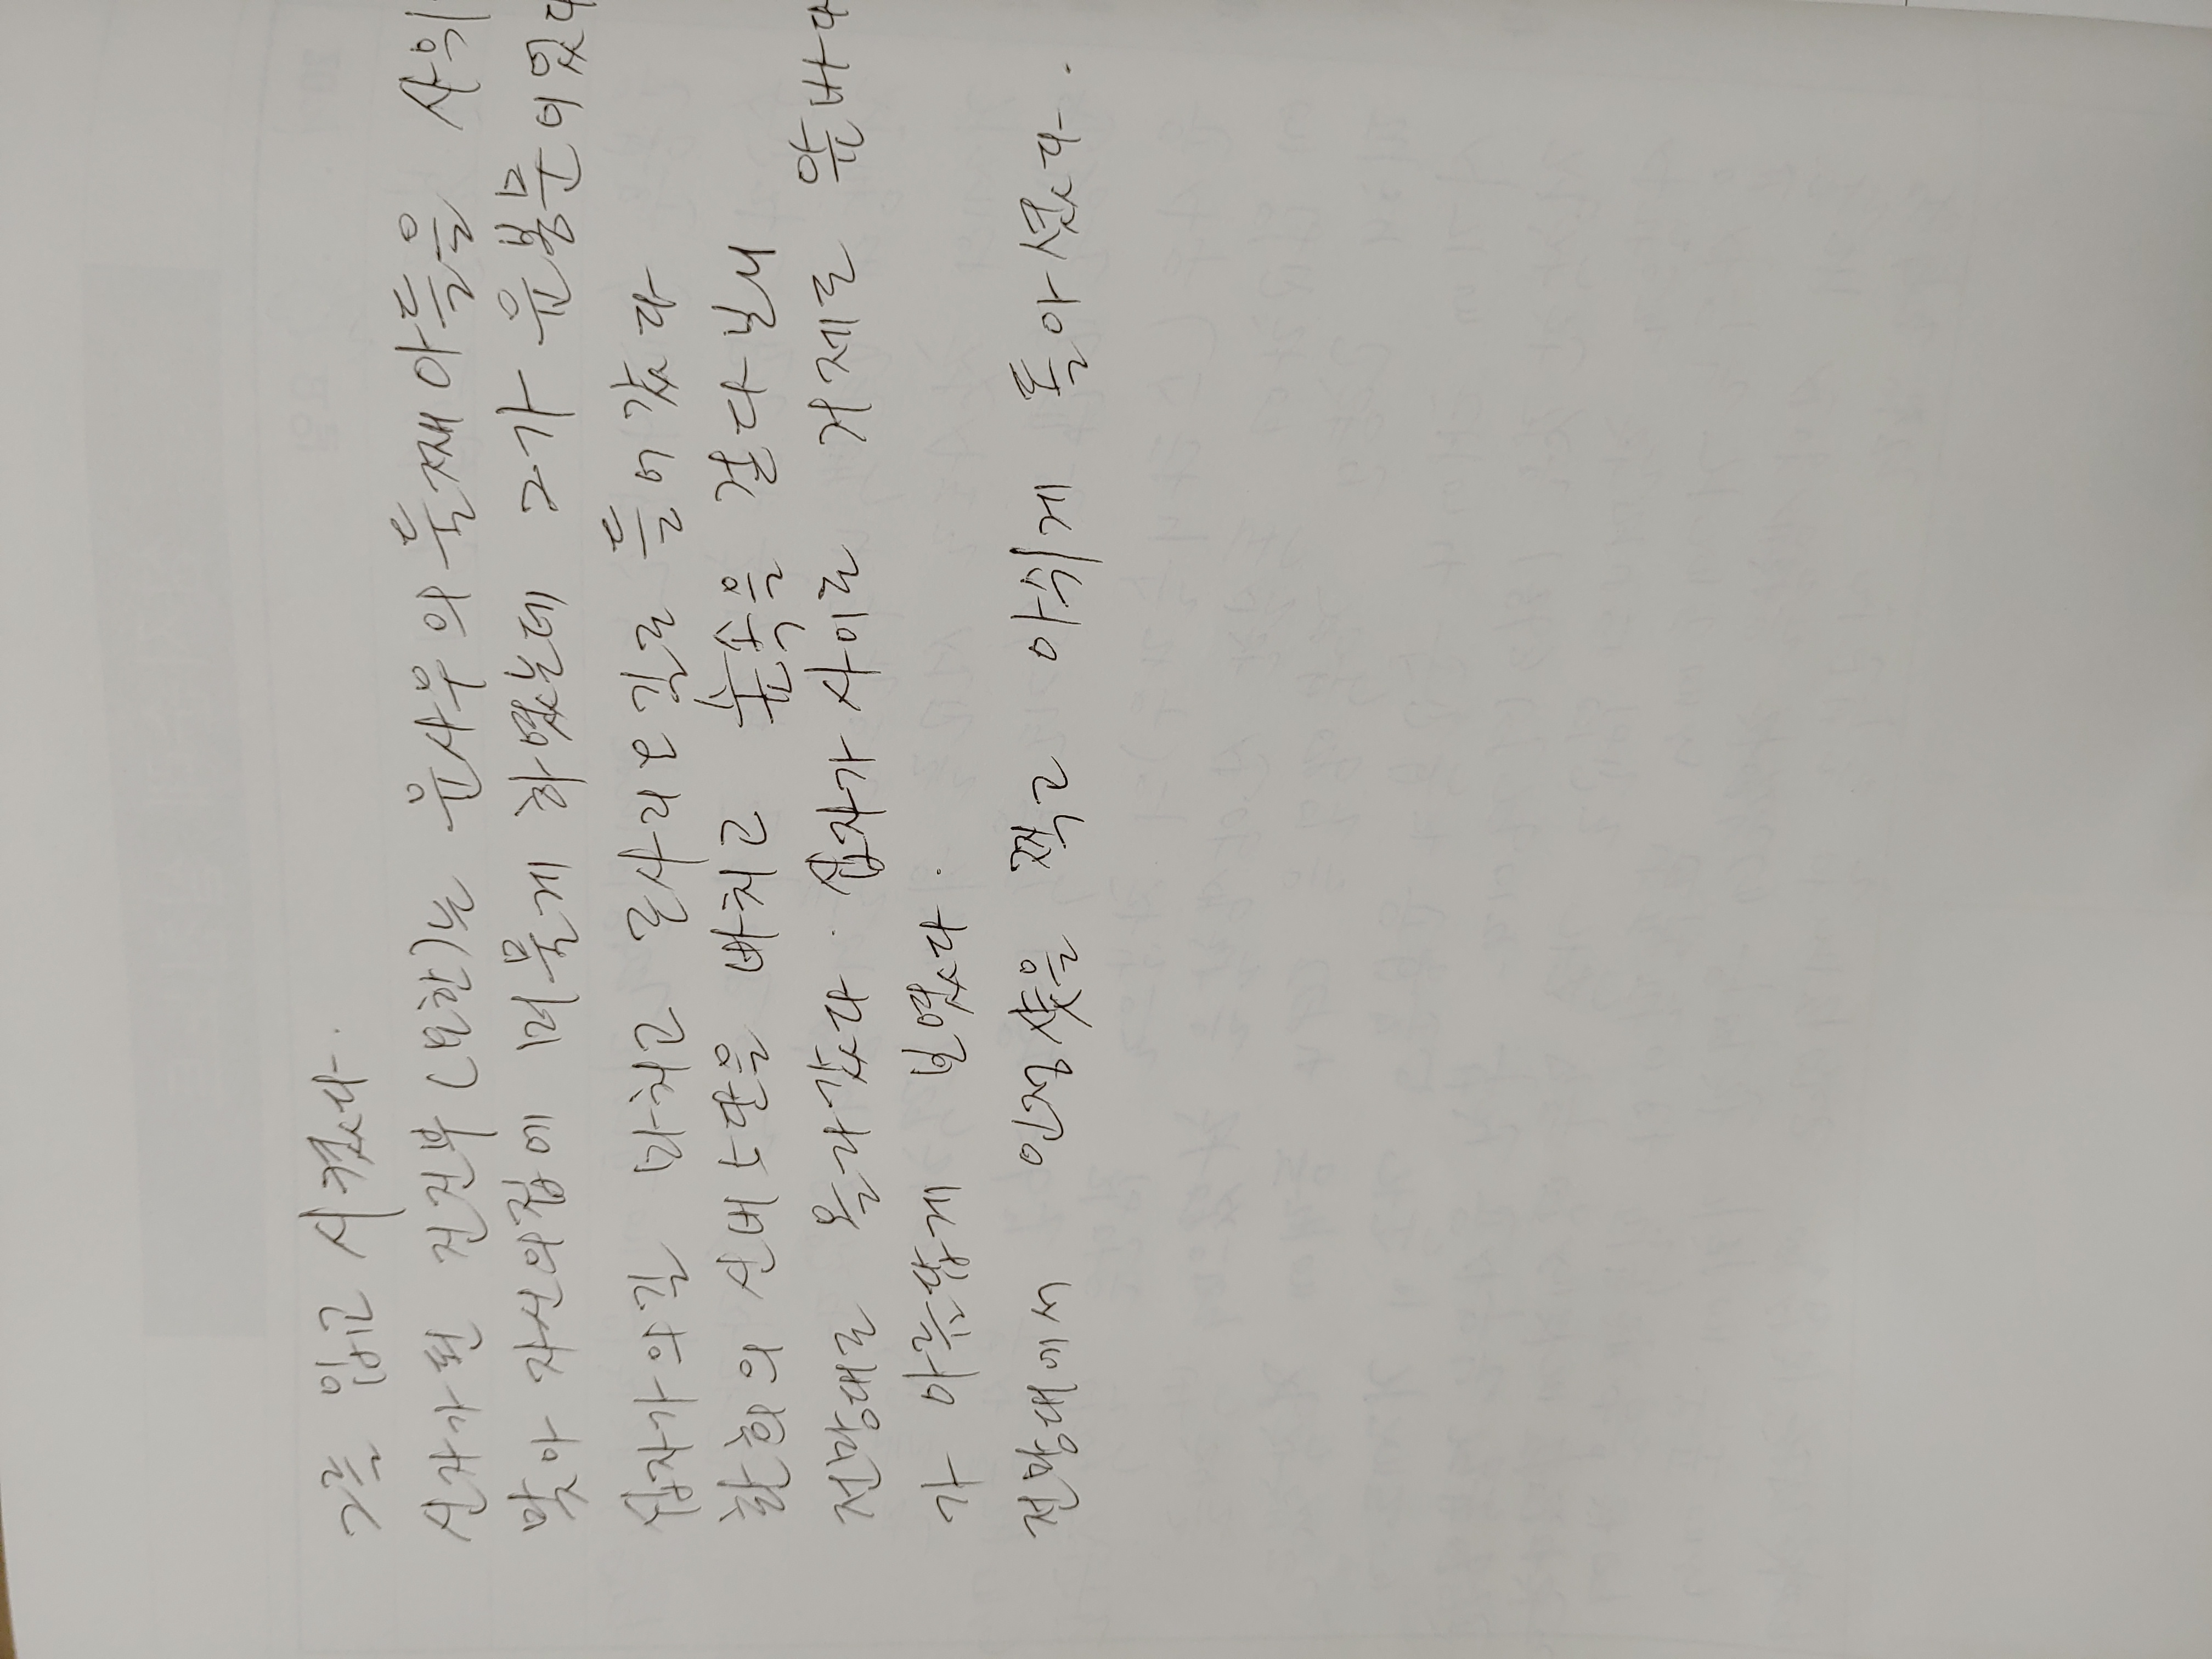 그를 입교 시켰다.
신자가 된 진진부(요한)는 윤사우의 둘째 아들을 사위
맞아 자신의 집에 머물게 하였는데 그가 윤봉문이었다
십자가의 길 마치고 로사리오 길로 들어갔다
환희의 신비 5단을 바치고 숲속을 걷다보니
전망대로 올라갔다. 십자가 사이로 거제도 앞바다
가 아름답게 보였다.
전망대에서 인정샷을 찍고 아쉽게 돌아섰다.